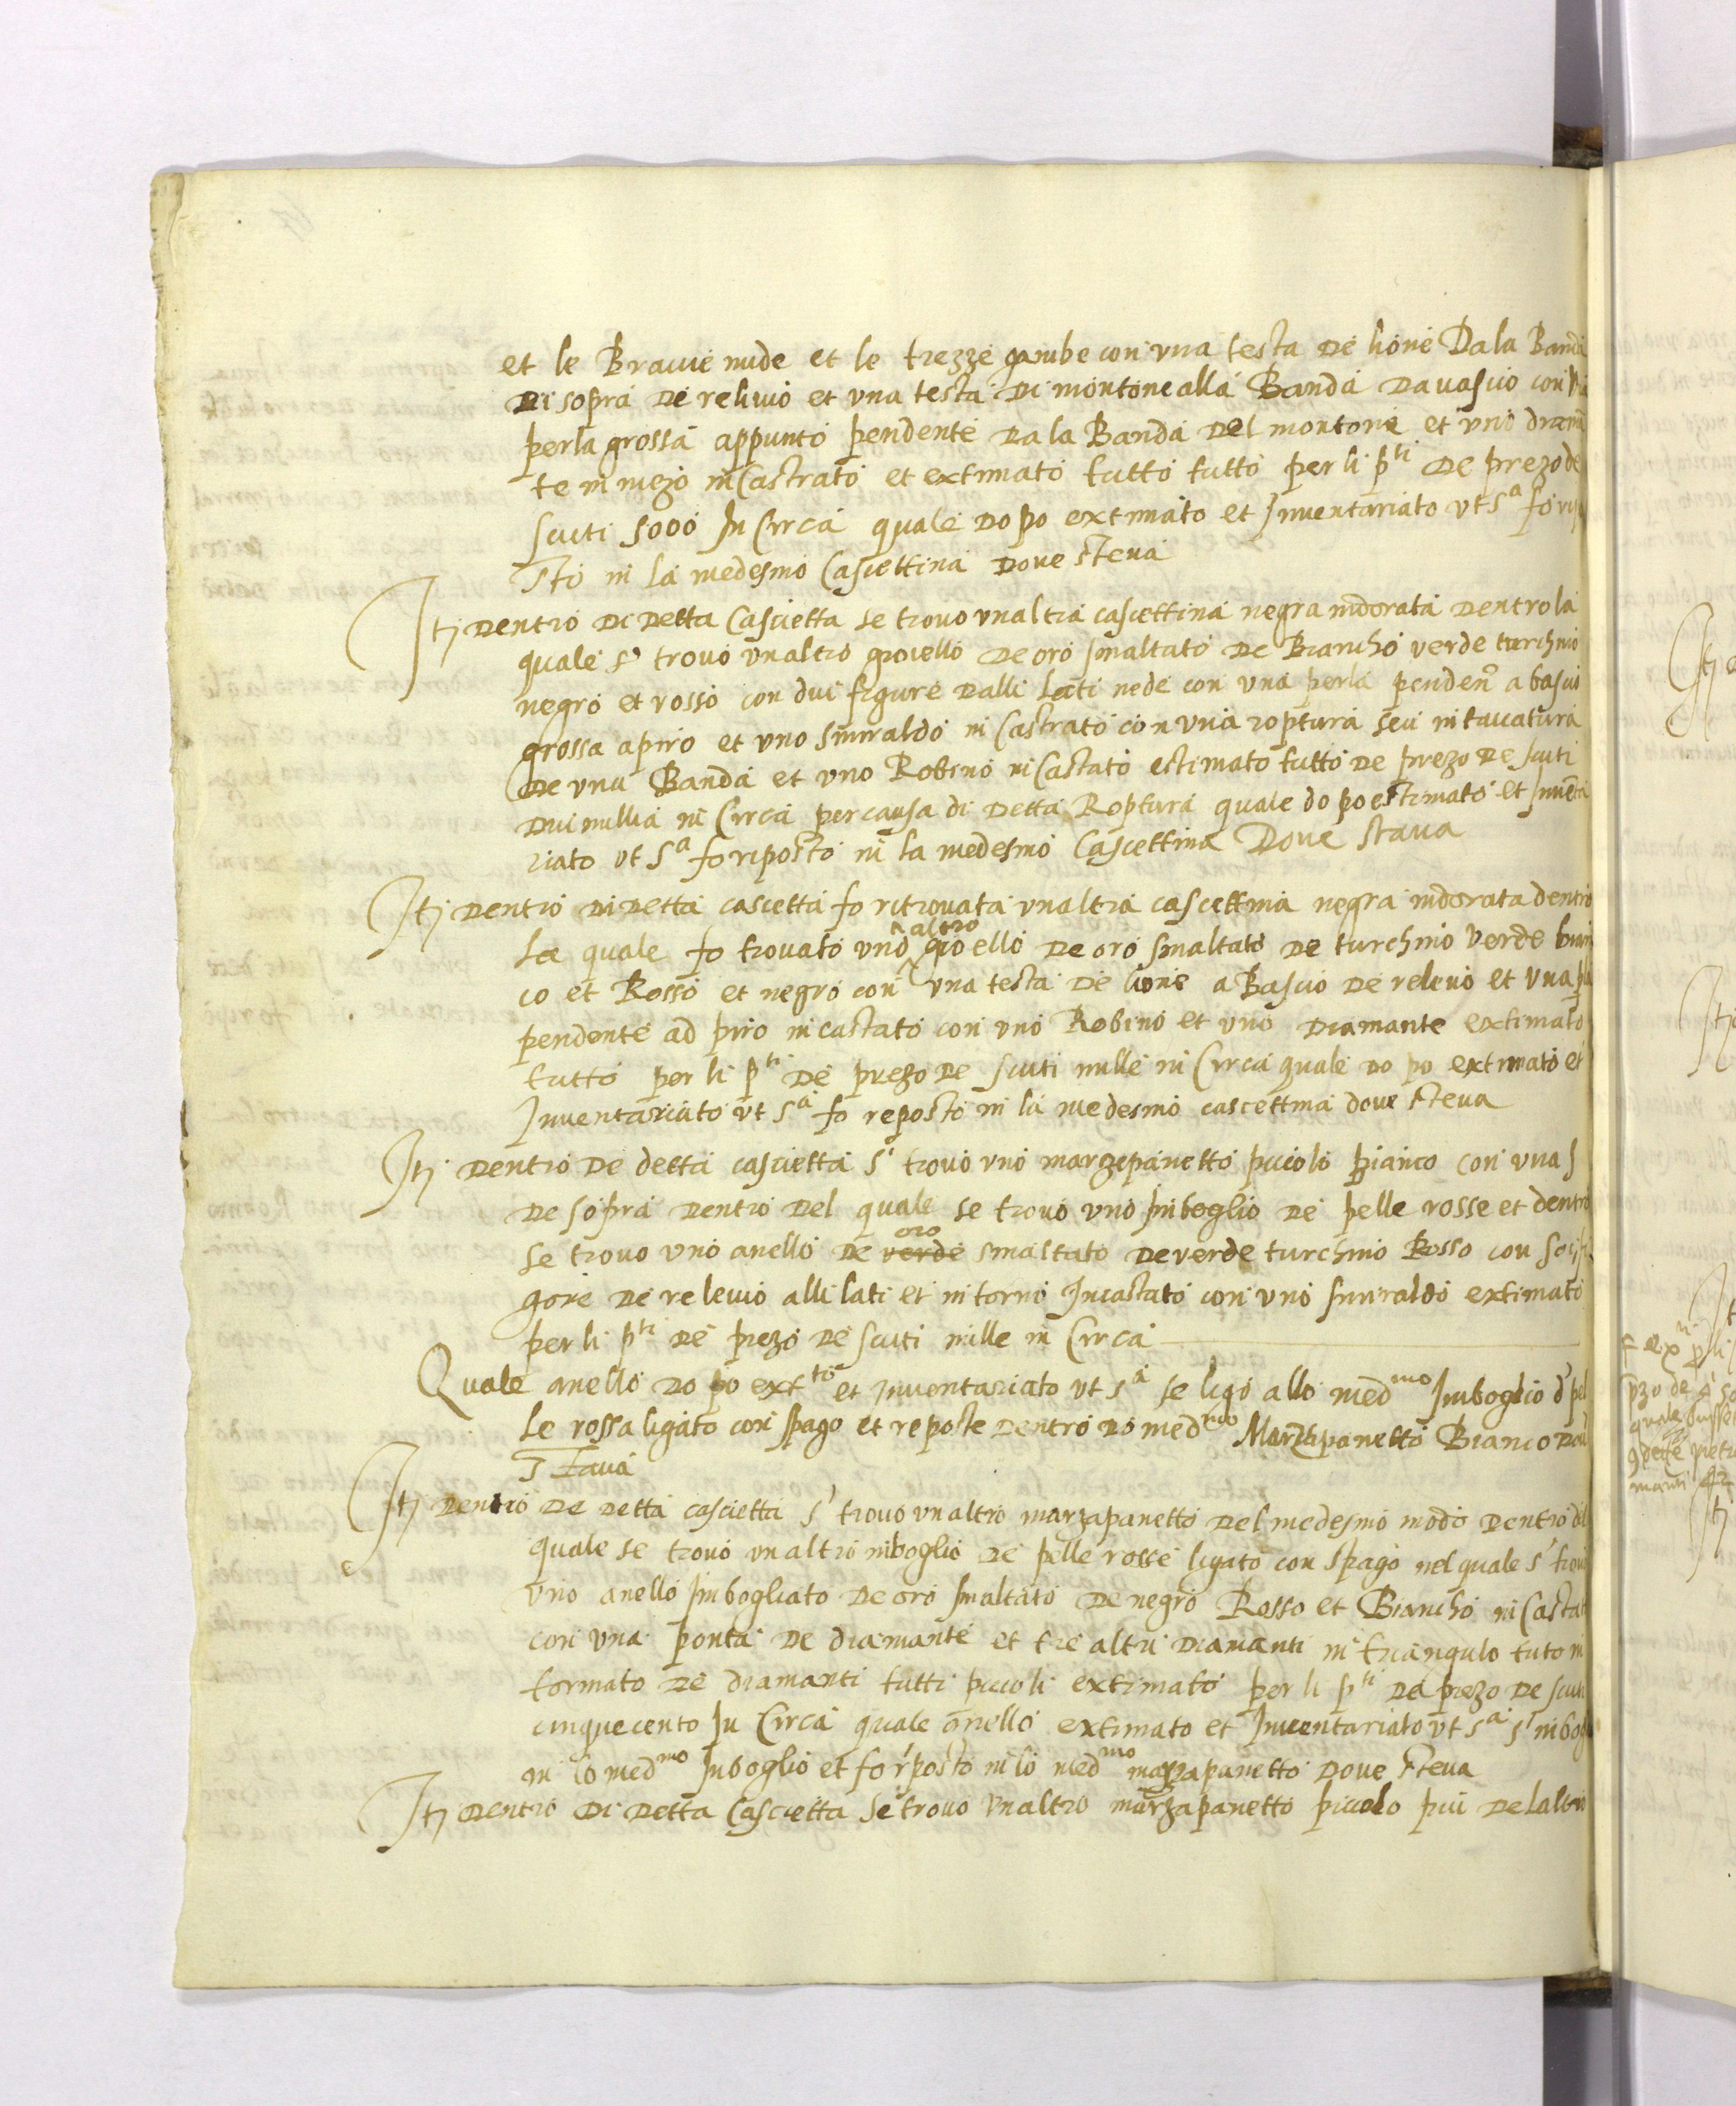 et le Braccie nude et le trezze gambe con una testa de lione Dala Banda
Di sopra de relievo et una testa di montone alla Banda Da vascio con
perla grossa appunto pendente Da la Banda Del montone et uno diaman
te in mezo incastrato et extimato tutto tutto per li p.ti De prezo de
scuti 5000 In Circa quale Dopo extimato et Inventariato ut s.a fo rip
sto in la medesmo Cascettina Dove steva
Itj Dentro Di Detta Cascietta se trovo unaltra cascettina negra indorata Dentro la
quale s' trovo unaltro gioiello De oro smaltato De Biancho verde turchino
negro et rosso con dui figure Dalli lati nede con una perla penden a bascio
grossa a piro et uno smiraldo in Castrato con una roptura seu intaccatura
De una Banda et uno Robino in Castato estimato tutto De prezo De scuti
Dui millia in Circa per causa di Detta Roptura quale do po estimato et Inventa
riato ut s.a fo riposto in la medesmo Cascettina Dove stava
Itj Dentro Di Detta cascetta fo ritrovata unaltra cascettina negra indorata dentro
La quale fo trovato uno altro gioello De oro smaltato De turchino verde bian
co et Rosso et negro con una testa De lione a Bascio De relevo et una
pendente ad piro in castato con uno Robino et uno Diamante extimato
tutto per li p.ti De prezo De scuti mille in Circa quale Do po extimato et
Inventariato ut s.a fo reposto in la medesmo cascettina dove steva
Itj Dentro De detta cascietta s' trovo uno marzepanetto piccolo bianco con una S
De sopra Dentro Del quale se trovo uno Imboglio De pelle rosse et dentro
se trovo uno anello De verde oro smaltato De verde turchino Rosso con
gore De relevio alli lati et intorno Incastato con uno smiraldo extimato
per li p.ti De prezo De scuti mille in Circa
Quale anello Do po ext.to et Inventariato ut s.a se ligo allo med.mo Imboglio d' pel
le rossa ligato con spago et reposte Dentro Lo med.mo Marzapanetto Bianco Dove
Stava
Itj Dentro De Detta cascietta s' trovo unaltro marzapanetto Del medesmo modo Dentro del
quale se trovo un altro inboglio De pelle rosse ligato con spago nel quale s' trovo
uno anello Imbogliato De oro smaltato De negro Rosso et Biancho in Castat
con una ponta De diamante et tre altri Diamanti in triangulo tuto in
tornato De diamanti tutti piccoli extimato per li p.ti De prezo De scuti
cinquecento In Circa quale anello extimato et Inventariato ut s.a s' inbog
in lo med.mo Inboglio et fo r'posto in lo med.mo marzapanetto Dove steva
Itj Dentro Di Detta Cascietta se trovo unaltro marzapanetto piccolo piu Delaltro